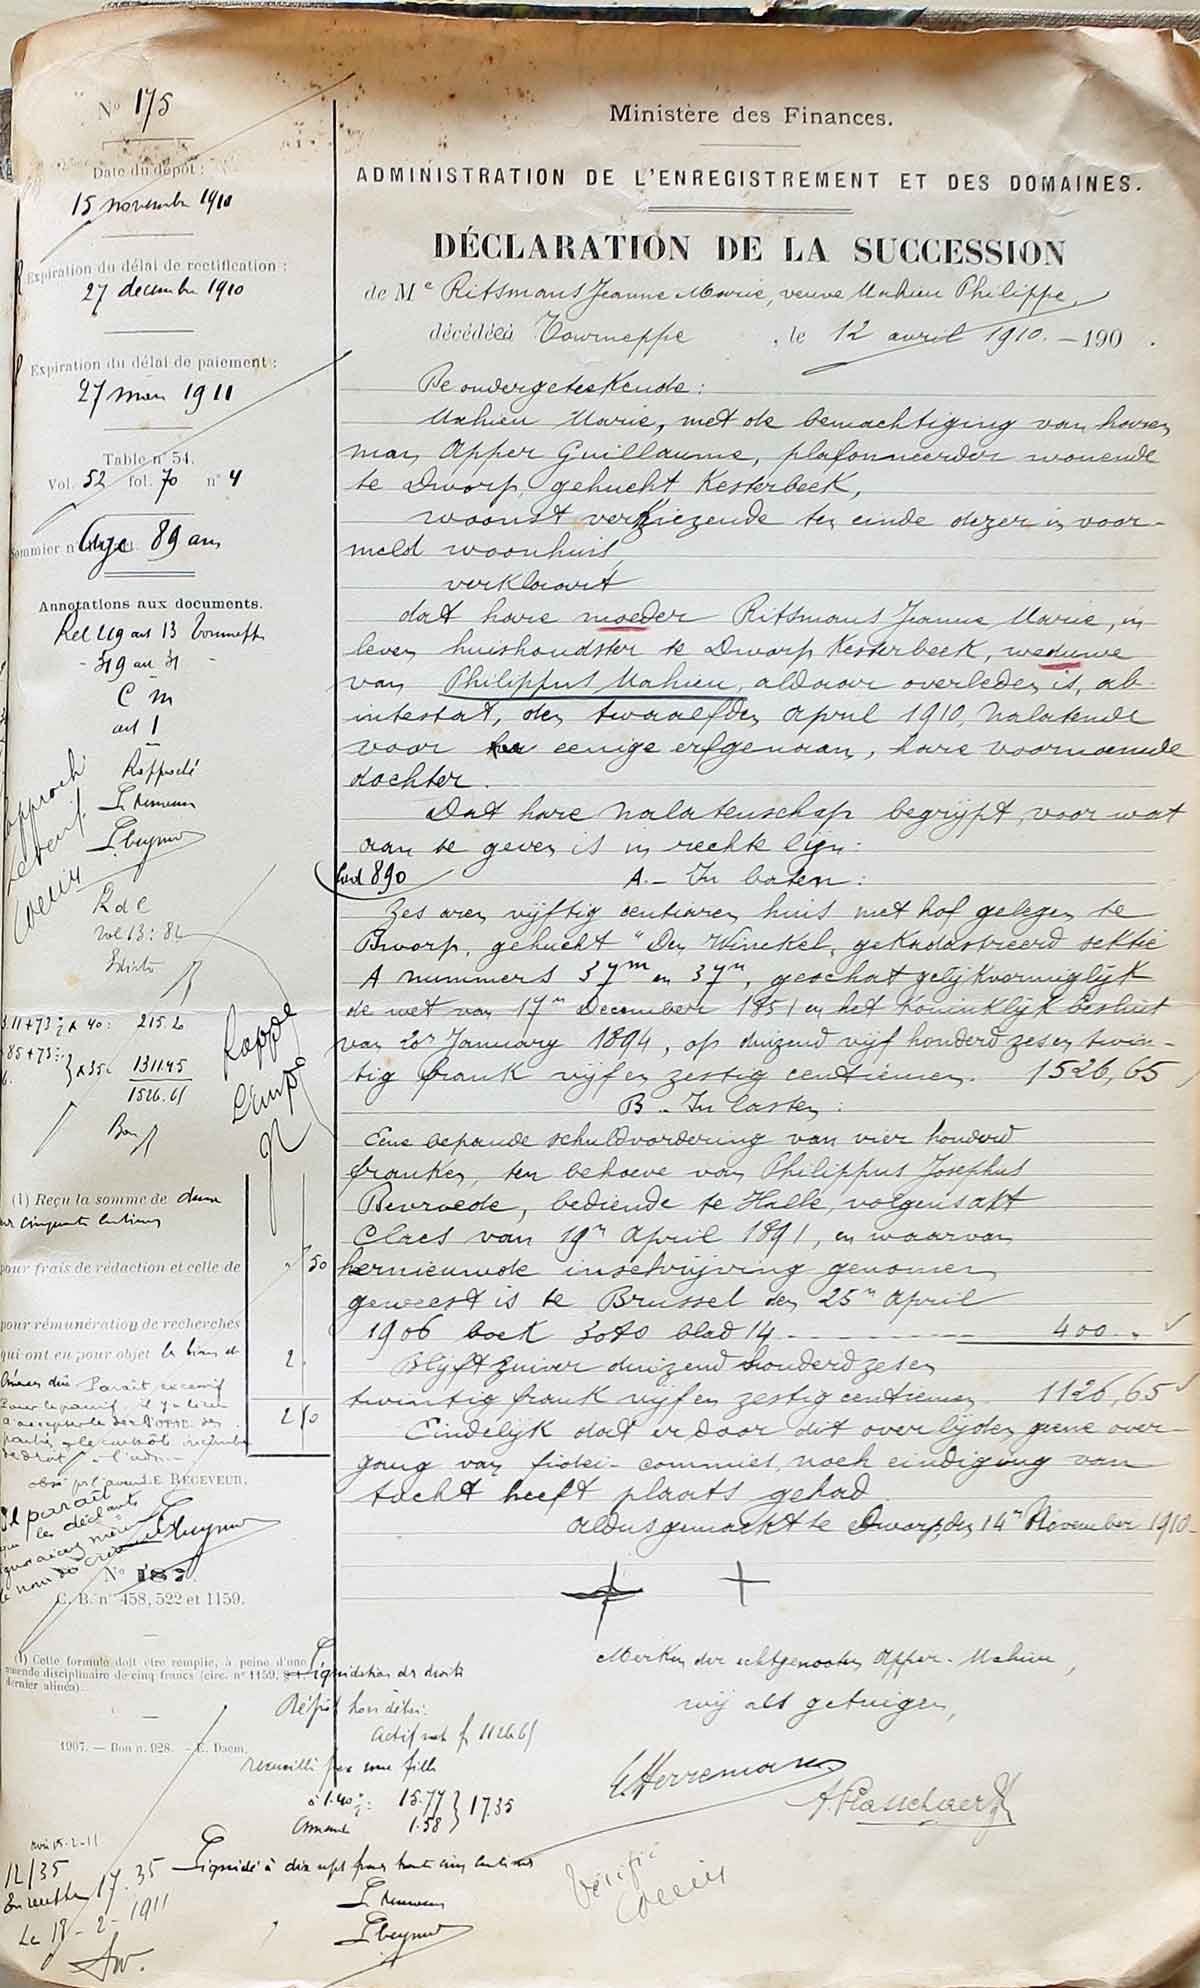 Nº 175
Date du dépôt :
15 novembre 1910
Expiration du délai de rectification :
27 decembre 1910
Expiration du délai de paiement :
27 mars 1911
Table nº 54.
Vol. 52 fol. 70 nº 4
Sommier n
Agé 89 ans
Annotations aux documents.
C M
art 1
R d C
Vol 13 : 82
3.11+73 x 40: 215.2
85+73 x35 1311.45
1526.65
Bon
(1) Reçu la somme de deux
cinquante centimes
pour frais de rédaction et celle de
50
pour rémunération de recherches
qui ont eu pour objet les biens et
2
Parait excessif
2 50
LE RECEVEUR,
Il parait
que les déclarants
Nº 187
C. B. nos 458, 522 et 1159.
(1) Cette formule doit être remplie, à peine d'une
amende disciplinaire de cinq francs (circ. nº 1159, §
dernier alinéa).
1907. — Bon n. 928. — E. Daem.
Ministère des Finances.
ADMINISTRATION DE L'ENREGISTREMENT ET DES DOMAINES.
DÉCLARATION DE LA SUCCESSION
de Me Ritsmans Jeanne Marie, veuve Mahieu Philippe,
décédée à Tourneppe , le 12 avril 1910. — 190 .
De ondergeteekende :
Mahieu Marie, met de bemachtiging van haren
man Apper Guillaume, plafonneerder wonende
te Dworp, gehucht Kesterbeek,
woonst verkiezende ten einde dezer in voor-
meld woonhuis,
verklaart
dat hare moeder Ritsmans Jeanne Marie, in
leven huishoudster te Dworp Kesterbeek, weduwe
van Philippus Mahieu, aldaar overleden is, ab-
intestat, den twaalfden April 1910, nalatende
voor eenige erfgenaam, hare voornoemde
dochter.
Dat hare nalatenschap begrijpt, voor wat
aan te geven is in rechte lijn :
890
A. - In baten :
Zes aren vijftig centiaren huis met hof gelegen te
Dworp, gehucht "Den Winckel, gekadastreerd sektie
A nummers 37m en 37n, geschat gelijkvormiglijk
de wet van 17n December 1851 en het Koninklijk besluit
van 20n January 1894, op duizend vijf honderd zes en twin-
tig frank vijf en zestig centiemen. 1526,65
B - In lasten :
Eene bepande schuldvordering van vier honderd
franken, ten behoeve van Philippus Josephus
Devroede, bediende te Halle, volgens akt
Claes van 19n April 1891, en waarvan
hernieuwde inschrijving genomen
geweest is te Brussel den 25n April
1906 boek 3070 blad 14 - 400 . "
Blijft zuiver duizend honderd zes en
twintig frank vijf en zestig centiemen 1126,65
Eindelijk dat er door dit overlijden geene over-
gang van fidei-commies, noch eindiging van
tocht heeft plaats gehad.
Aldus gemaakt te Dworp, den 14n November 1910
+ +
Merken der echtgenooten Apper-Mahieu,
wij als getuigen,
E. Herremans
A. Plasschaert
Liquidation des droits
Dépôt hors délai.
Actif net f 1126.65
recueilli par une fille
à 1.40 %: 15.77
Amende 1.58 } 17.35
Liquidé à dix sept francs trente cinq centimes
12/35
17.35
Le 18-2-1911
Vérifié